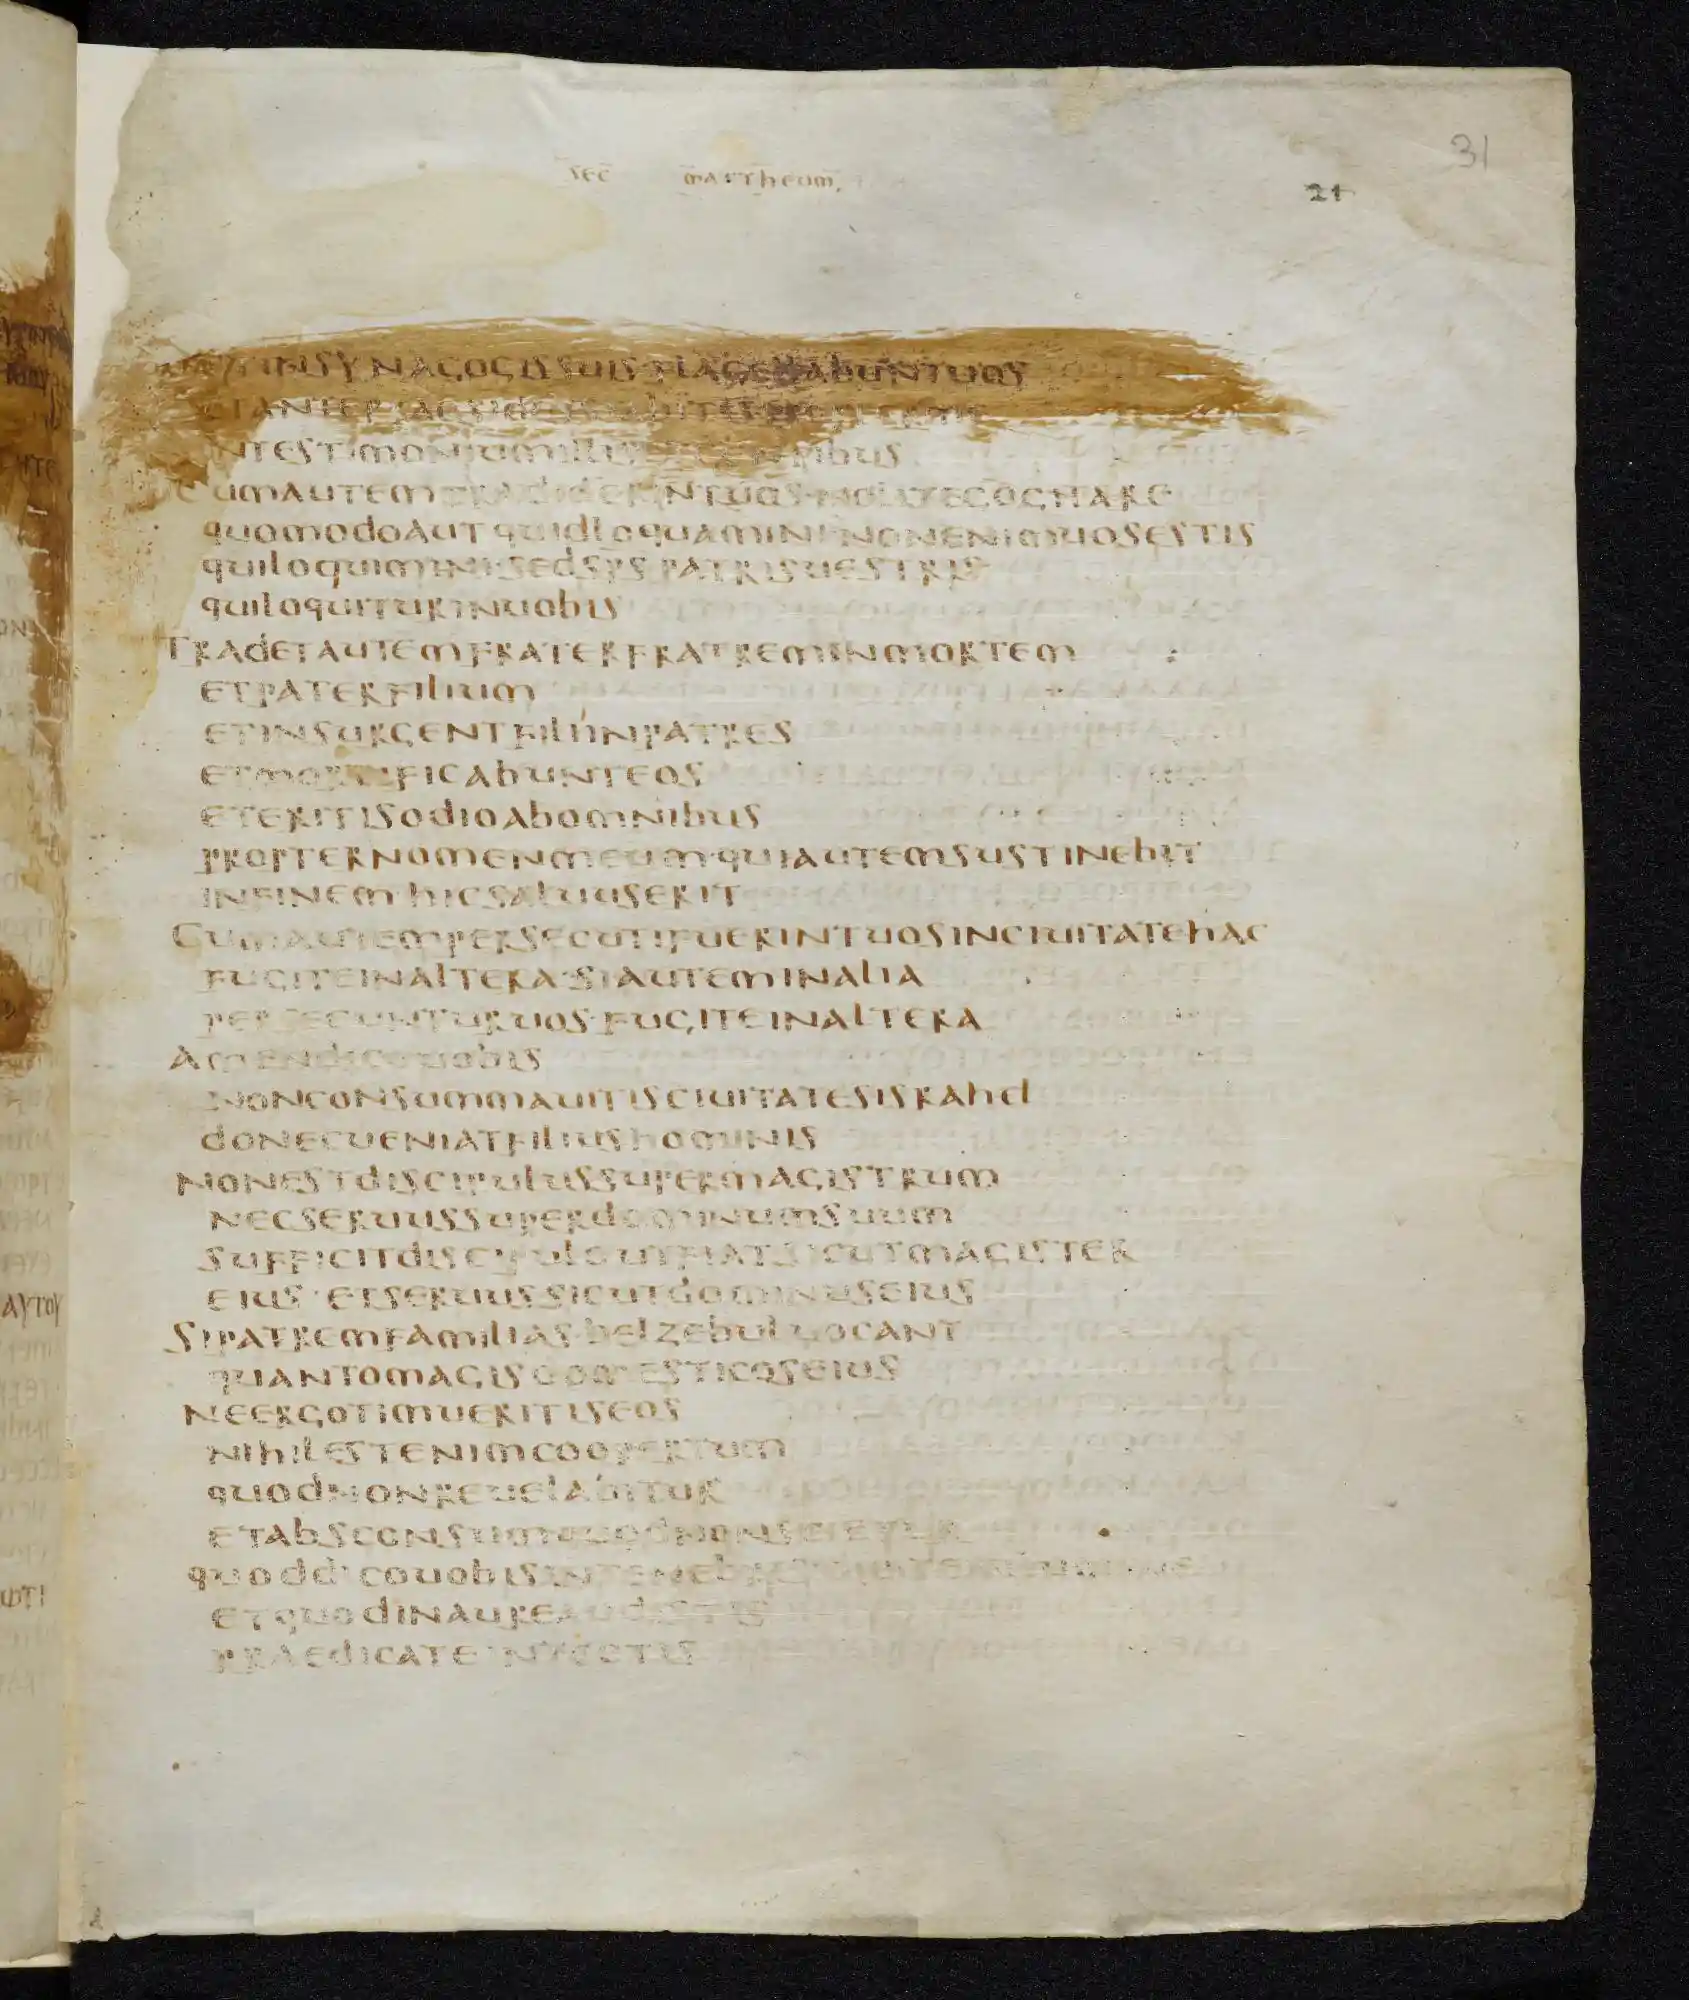 sec mattheum
31
21
INSYNAGOGISSUISFLAGELLABUNTUOS
INTESTIMONIUMILLIS
CUMAUTEMTRADIDERINTUOS·NOLITECOGITARE
quomodoAUTquidloquAMINI·NONENIMUOSESTIS
quiloquiMINI·SEdSPSPATRISUESTRIS
quiloquITURINUobIS
TRAdETAUTEMFRATERFRATREMINMORTEM
ETPATERFILIUM
ETINSURGENTFILIIINPATRES
ETMORTIFICAbUNTEOS
ETERITISOdIOAbOMNIbUS
PROPTERNOMENMEUM·quIAUTEMSUSTINEbIT
INFINEMhICSALUUSERIT
CUMAUTEMPERSECUTIFUERINTUOSINCIUITATEhAC
FUGITEINALTERA·SIAUTEMINALIA
PERSECUNTURUOS·FUGITEINALTERA
AMENdICOUObIS
NONCONSUMMAUITISCIUITATESISRAhEL
dONECUENIATFILIUShOMINIS
NONESTdISCIPULUSSUPERMAGISTRUM
NECSERUUSSUPERdOMINUMSUUM
SUFFICITdISCIPULOUTFIATSICUTMAGISTER
EIUS·ETSERUUSSICUTdOMINUSEIUS
SIPATREMFAMILIAS·bELZEbULUOCANT
quANTOMAGISdOMESTICOSEIUS
NEERGOTIMUERITISEOS
NIhILESTENIMCOOPERTUM
quOdNONREUELAbITUR
ETAbSCONSUMquOdNONSCIETUR
quOddICOUObISINTENEbRIS
ETquOdINAUREAUdISTIS
PRAEdICATEINTECTIS